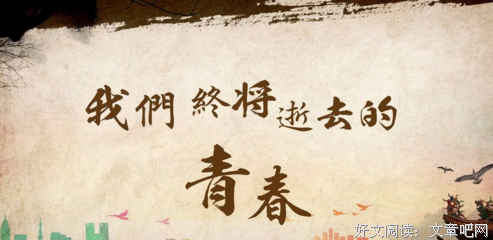 我們終将逝去的
青春
好文阅读：文章吧网